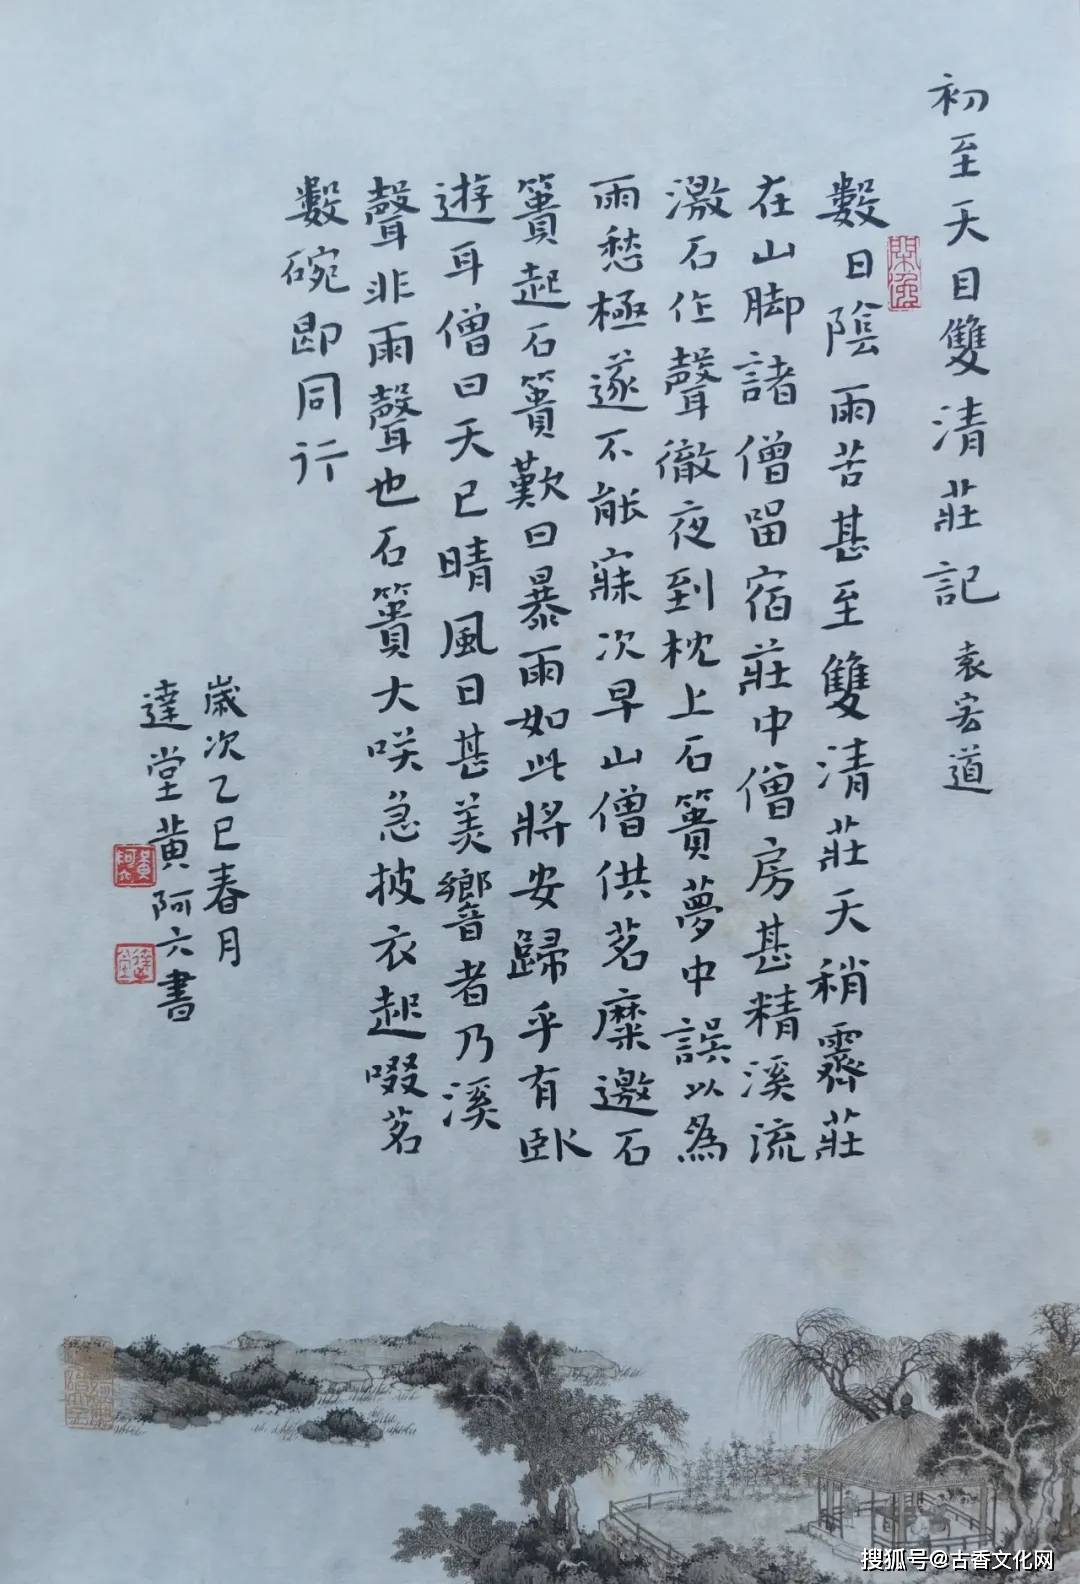 初至天目雙清莊記 袁宏道
數日陰雨苦甚至雙清莊天稍霽莊
在山脚諸僧留宿莊中僧房甚精溪流
激石作聲徹夜到枕上石簣夢中誤以為
雨愁極遂不能寐次早山僧供茗糜邀石
簣起石簣歎曰暴雨如此將安歸乎有卧
遊耳僧曰天已晴風日甚美響者乃溪
聲非雨聲也石簣大咲急披衣起啜茗
數碗即同行
歲次乙巳春月
達堂黃阿六書
黃阿六
達堂
搜狐号@古香文化网